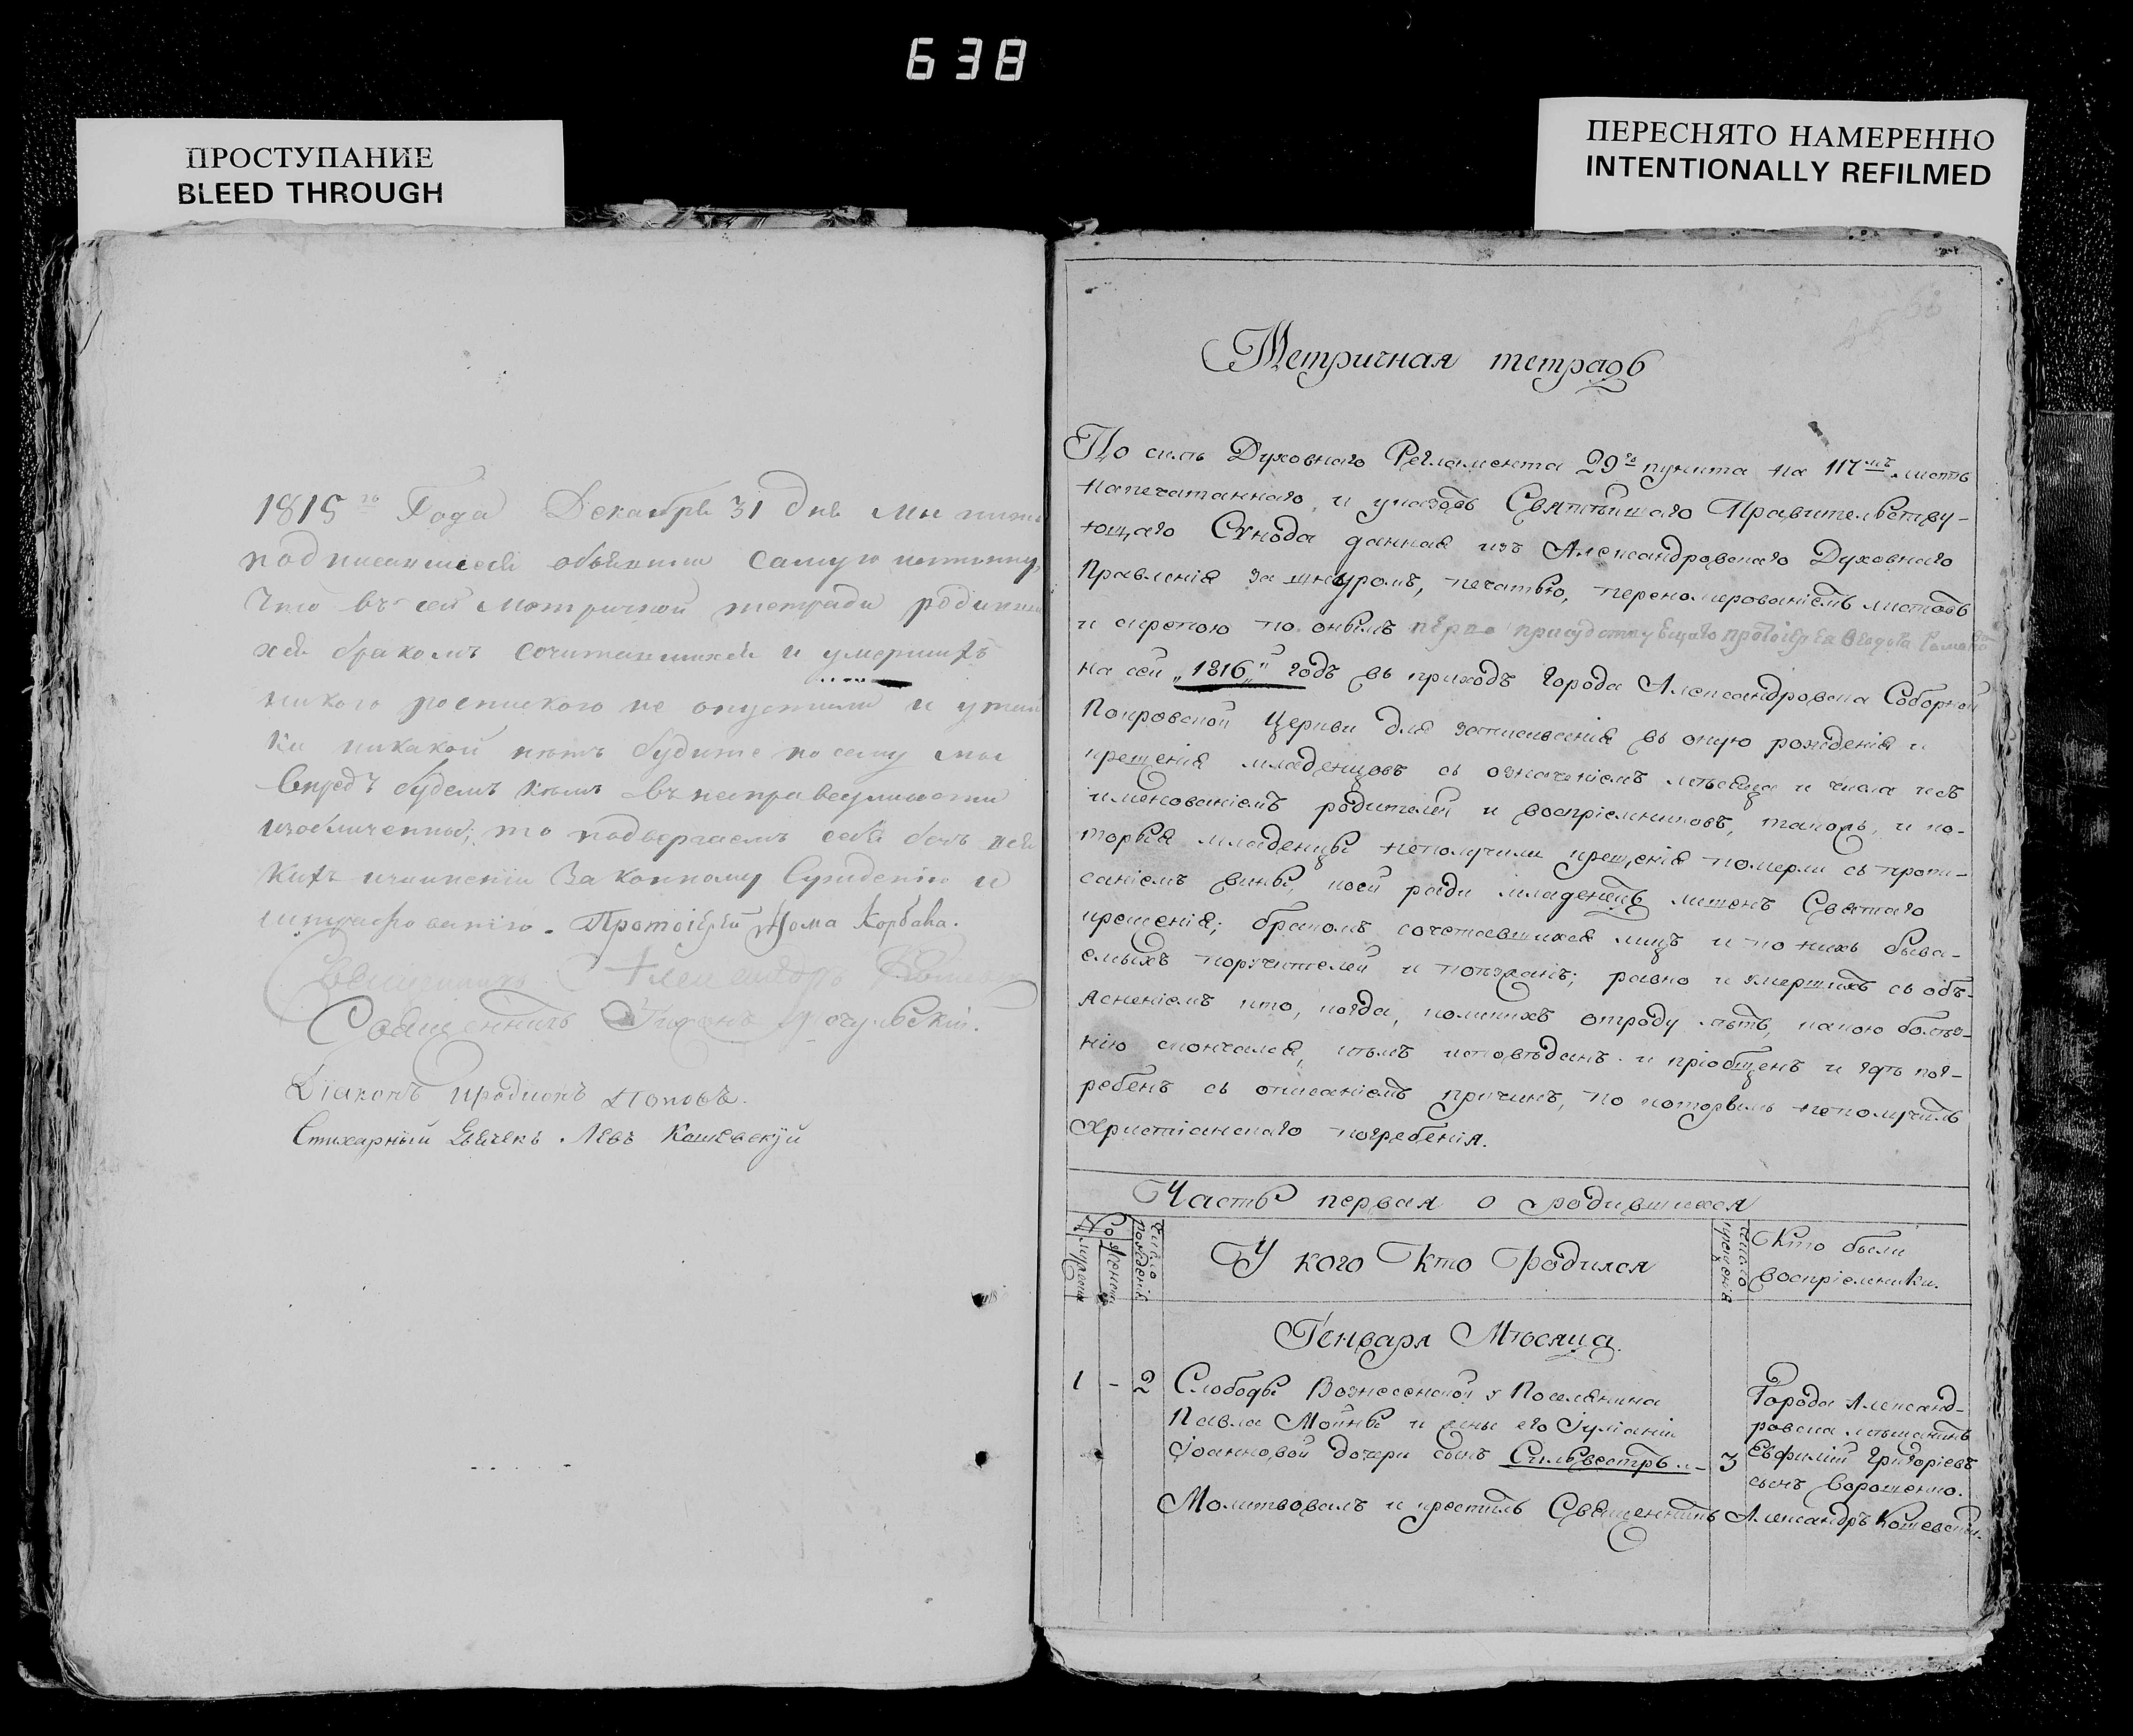 638
ПРОСТУПАНИЕ
BLEED THROUGH
ПЕРЕСНЯТО НАМЕРЕННО
INTENTIONALLY REFILMED
1815го Года Декабря 31 дня мы ниже
подписавшиеся объявили самую истинну,
что въ сей метричной тетради родивши
хся бракомъ сочитавшихся и умершихъ
никого родскаго не опустили и утай
ки никакой нѣтъ будите по сему мы
впредъ будемъ кѣмъ въ несправедливости
изобличенны; то подвергаемъ себя безъ вся
кихъ законному сужденію и
штрафованію. Протоіерей Фома Корбака.
Священникъ Александръ
Священникъ
Діаконъ Иродіонъ Поповъ.
Стихарный Дьячекъ Левъ Кошевскуй
Метричная тетрадь
По силѣ Духовнаго Регламента 29го пункта на 117мъ листѣ
напечатаннаго, и указовъ Святѣйшаго Правительству-
ющаго Сѵнода данная изъ Александровскаго Духовнаго
Правленія за шнуромъ, печатью, переномерованіемъ листовъ
и скрепою по онымъ перво присудствующаго протоіерея Ѳеодота
на сей „1816„ годъ въ приходъ города Александровска Соборной
Покровской Церкви для записыванія въ оную рожденія и
крещенія младенцовъ съ означеніемъ мѣсяца и числа изъ
именованіемъ родителей и воспріемниковъ, такожъ, и ко-
торыя младенцы неполучили крещенія померли съ пропи-
саніемъ вины, коей ради младенецъ лишенъ Святаго
крещенія; бракомъ сочетавшихся лицъ и по нихъ быва-
емыхъ поручителей и поѣзжанъ; равно и умершихъ съ объ-
ясненіемъ кто, когда, коликихъ отроду лѣтъ, какою болѣз-
нію скончался, кѣмъ исповѣданъ и пріобщенъ и гдѣ пог-
ребенъ съ описаніемъ причинъ, по которымъ неполучилъ
Христіанскаго погребенія.
Часть первая о родившихся
№ мужеска женска
число рожденія
У кого кто родился
число крещенія
Кто были
воспріемники.
Генваря Мѣсяца.
1 - 2 Слободы Вознесенской у Поселянина
Павла Мойны и жены его Іуліаніи
Іоанновой дочери сынъ Сильвестръ - 3
Города Александ-
ровска мѣщанинъ
Евфимій Григоріевъ
сынъ Ворошенко.
Молитвовалъ и крестилъ Священникъ Александръ Кошевскій.